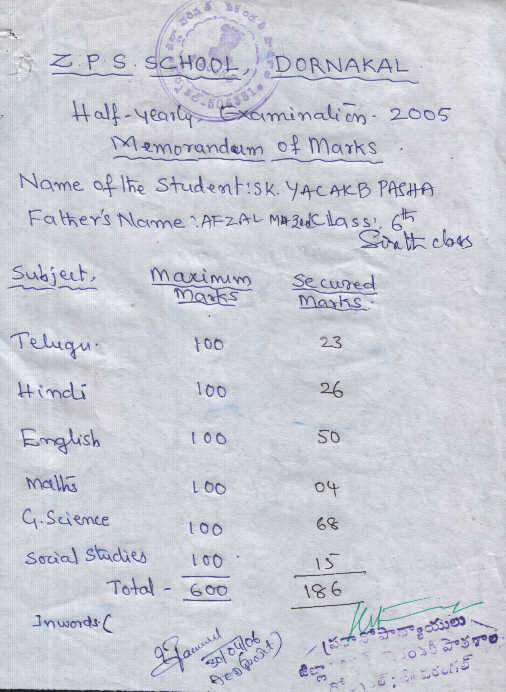 Z.P.S. SCHOOL, DORNAKAL
Half-yearly Examination - 2005
Memorandum of Marks
Name of the Student: SK. YACAKB PASHA
Father's Name: AFZAL Class: 6th
Sixth class
Subject. Maximum Marks Secured Marks.
Telugu. 100 23
Hindi 100 26
English 100 50
Maths 100 04
G. Science 100 68
Social Studies 100 15
Total - 600 186
Inwords (
30/04/06
(ప్రధానోపాధ్యాయులు
జిల్లా